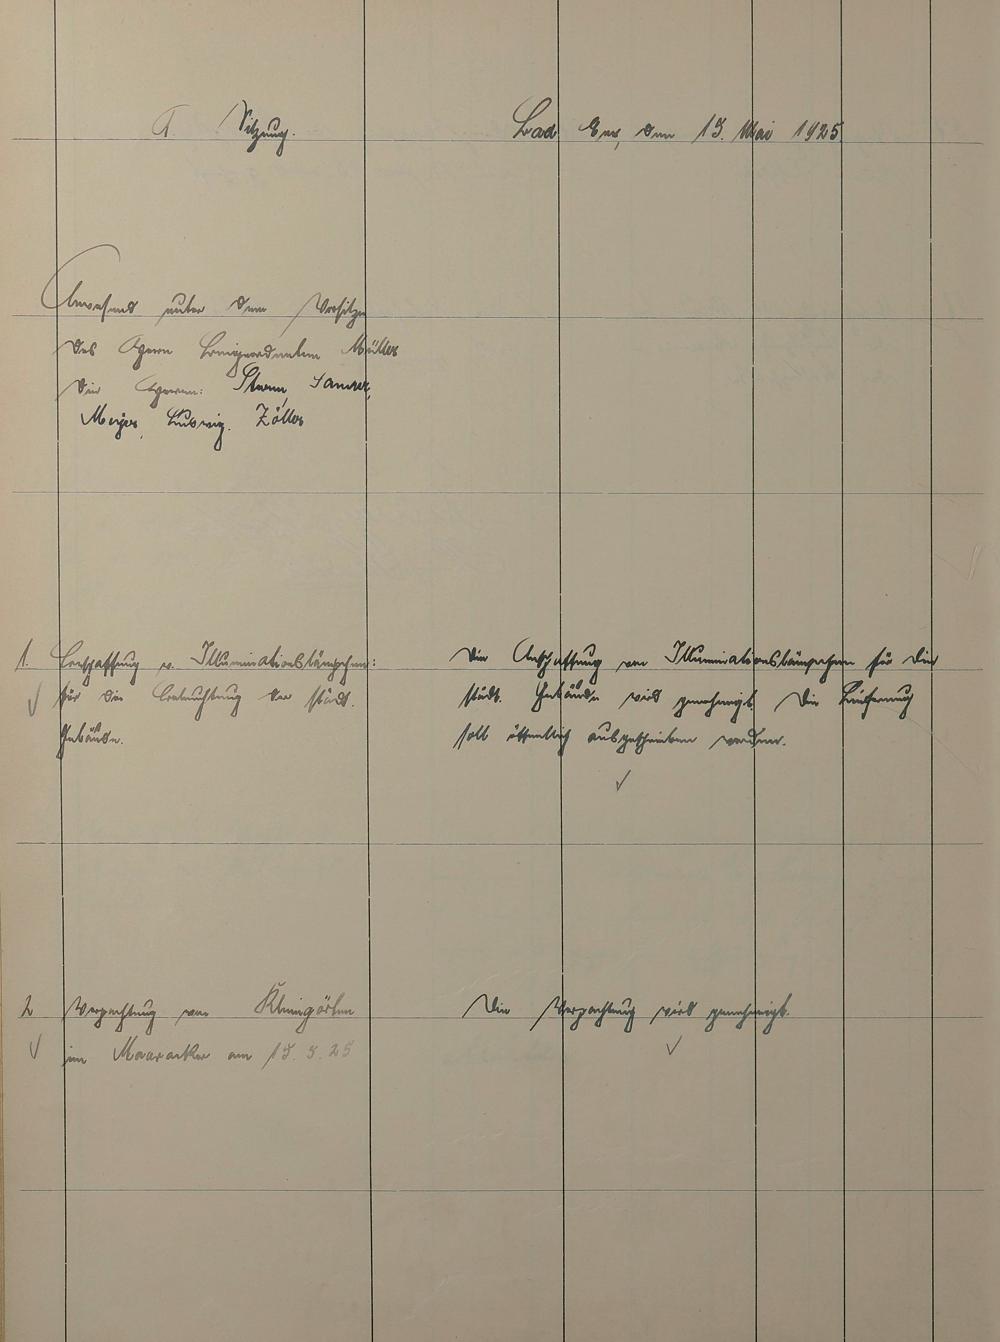 Sitzung.
Bad Ems, den 15. Mai 1925.
Anwesend unter dem Vorsitze
des Herrn Beigeordneten Müller
die Herren: Sturm,
Meyer, Ludwig, Zöller
1. Beschaffung v. Illuminationslämpchen
für die Beleuchtung der städt.
Gebäude.
Die Anschaffung von Illuminationslämpchen für die
städt. Gebäude wird genehmigt. Die Lieferung
soll öffentlich ausgeschrieben werden.
2 Verpachtung von Kleingärten
im am 15. 5. 25
Die Verpachtung wird genehmigt.